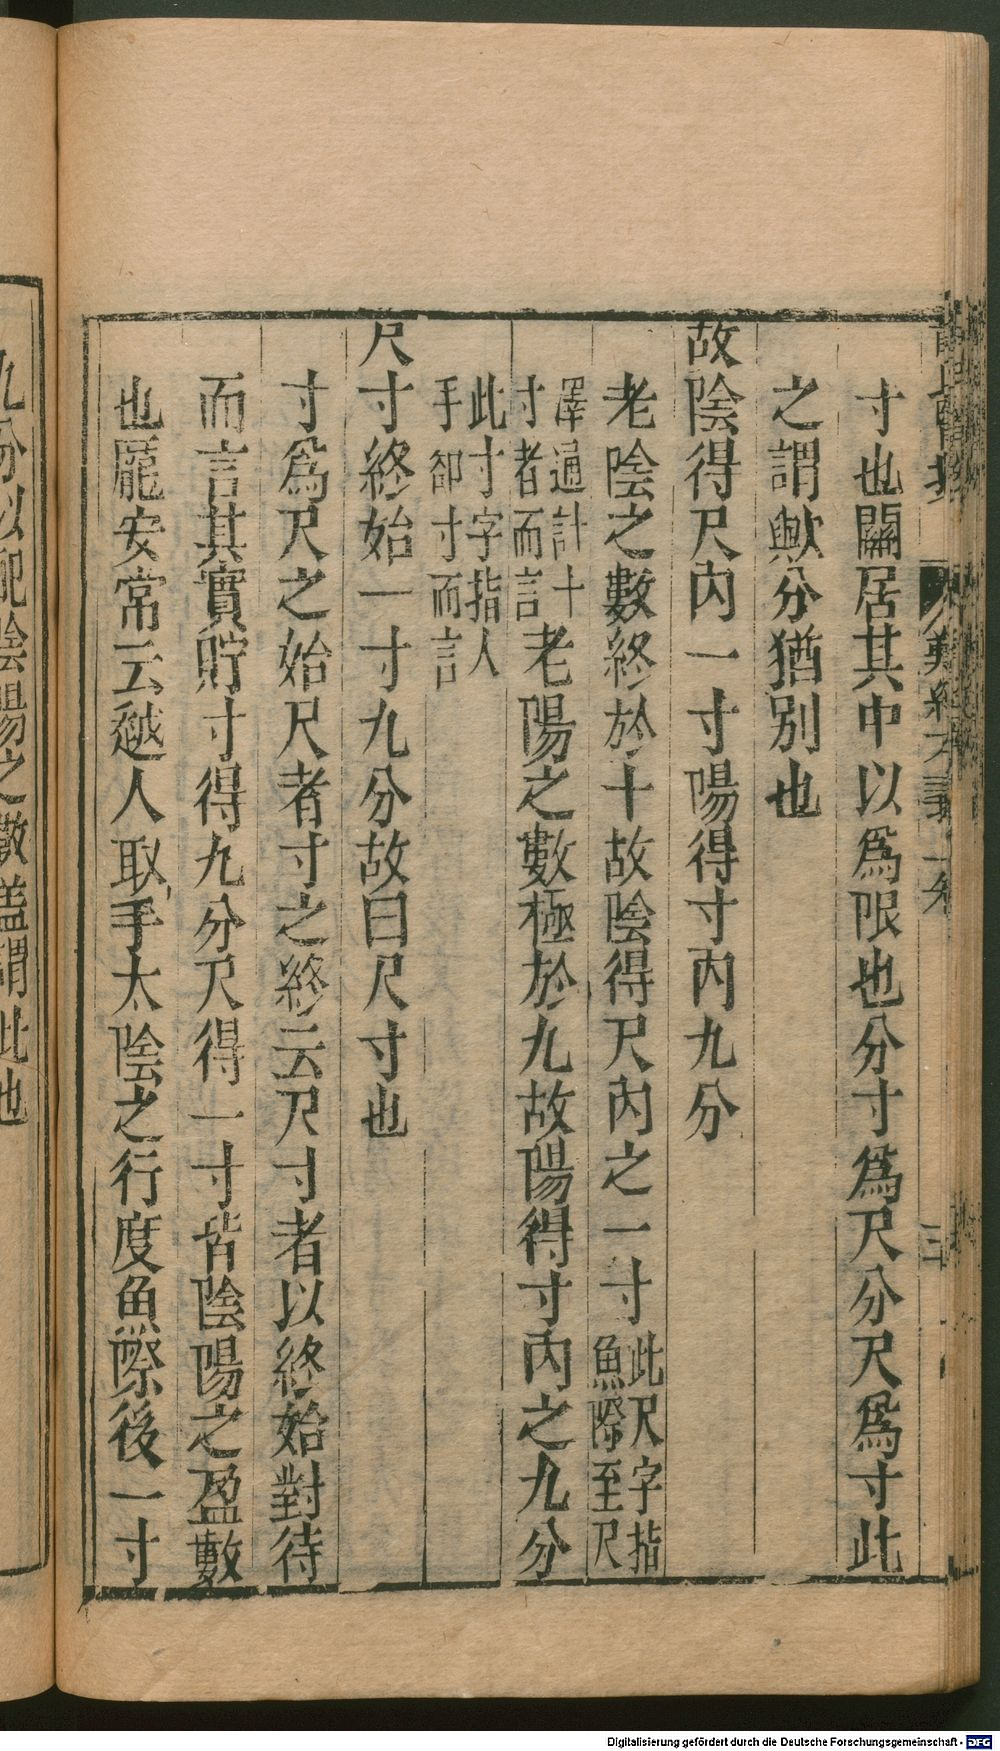 寸也關居其中以爲限也分寸爲尺分尺爲寸此
之謂歟分猶別也
故陰得尺內一寸陽得寸內九分
老陰之數終於十故陰得尺內之一寸此尺字指
魚際至尺
澤通計十
寸者而言老陽之數極於九故陽得寸內之九分
此寸字指人
手卻寸而言
尺寸終始一寸九分故曰尺寸也
寸爲尺之始尺者寸之終云尺寸者以終始對待
而言其實貯寸得九分尺得一寸皆陰陽之盈數
也龐安常云越人取手太陰之行度魚際後一寸
九分以配陰陽之數蓋謂此也
Digitalisierung gefördert durch die Deutsche Forschungsgemeinschaft - DFG